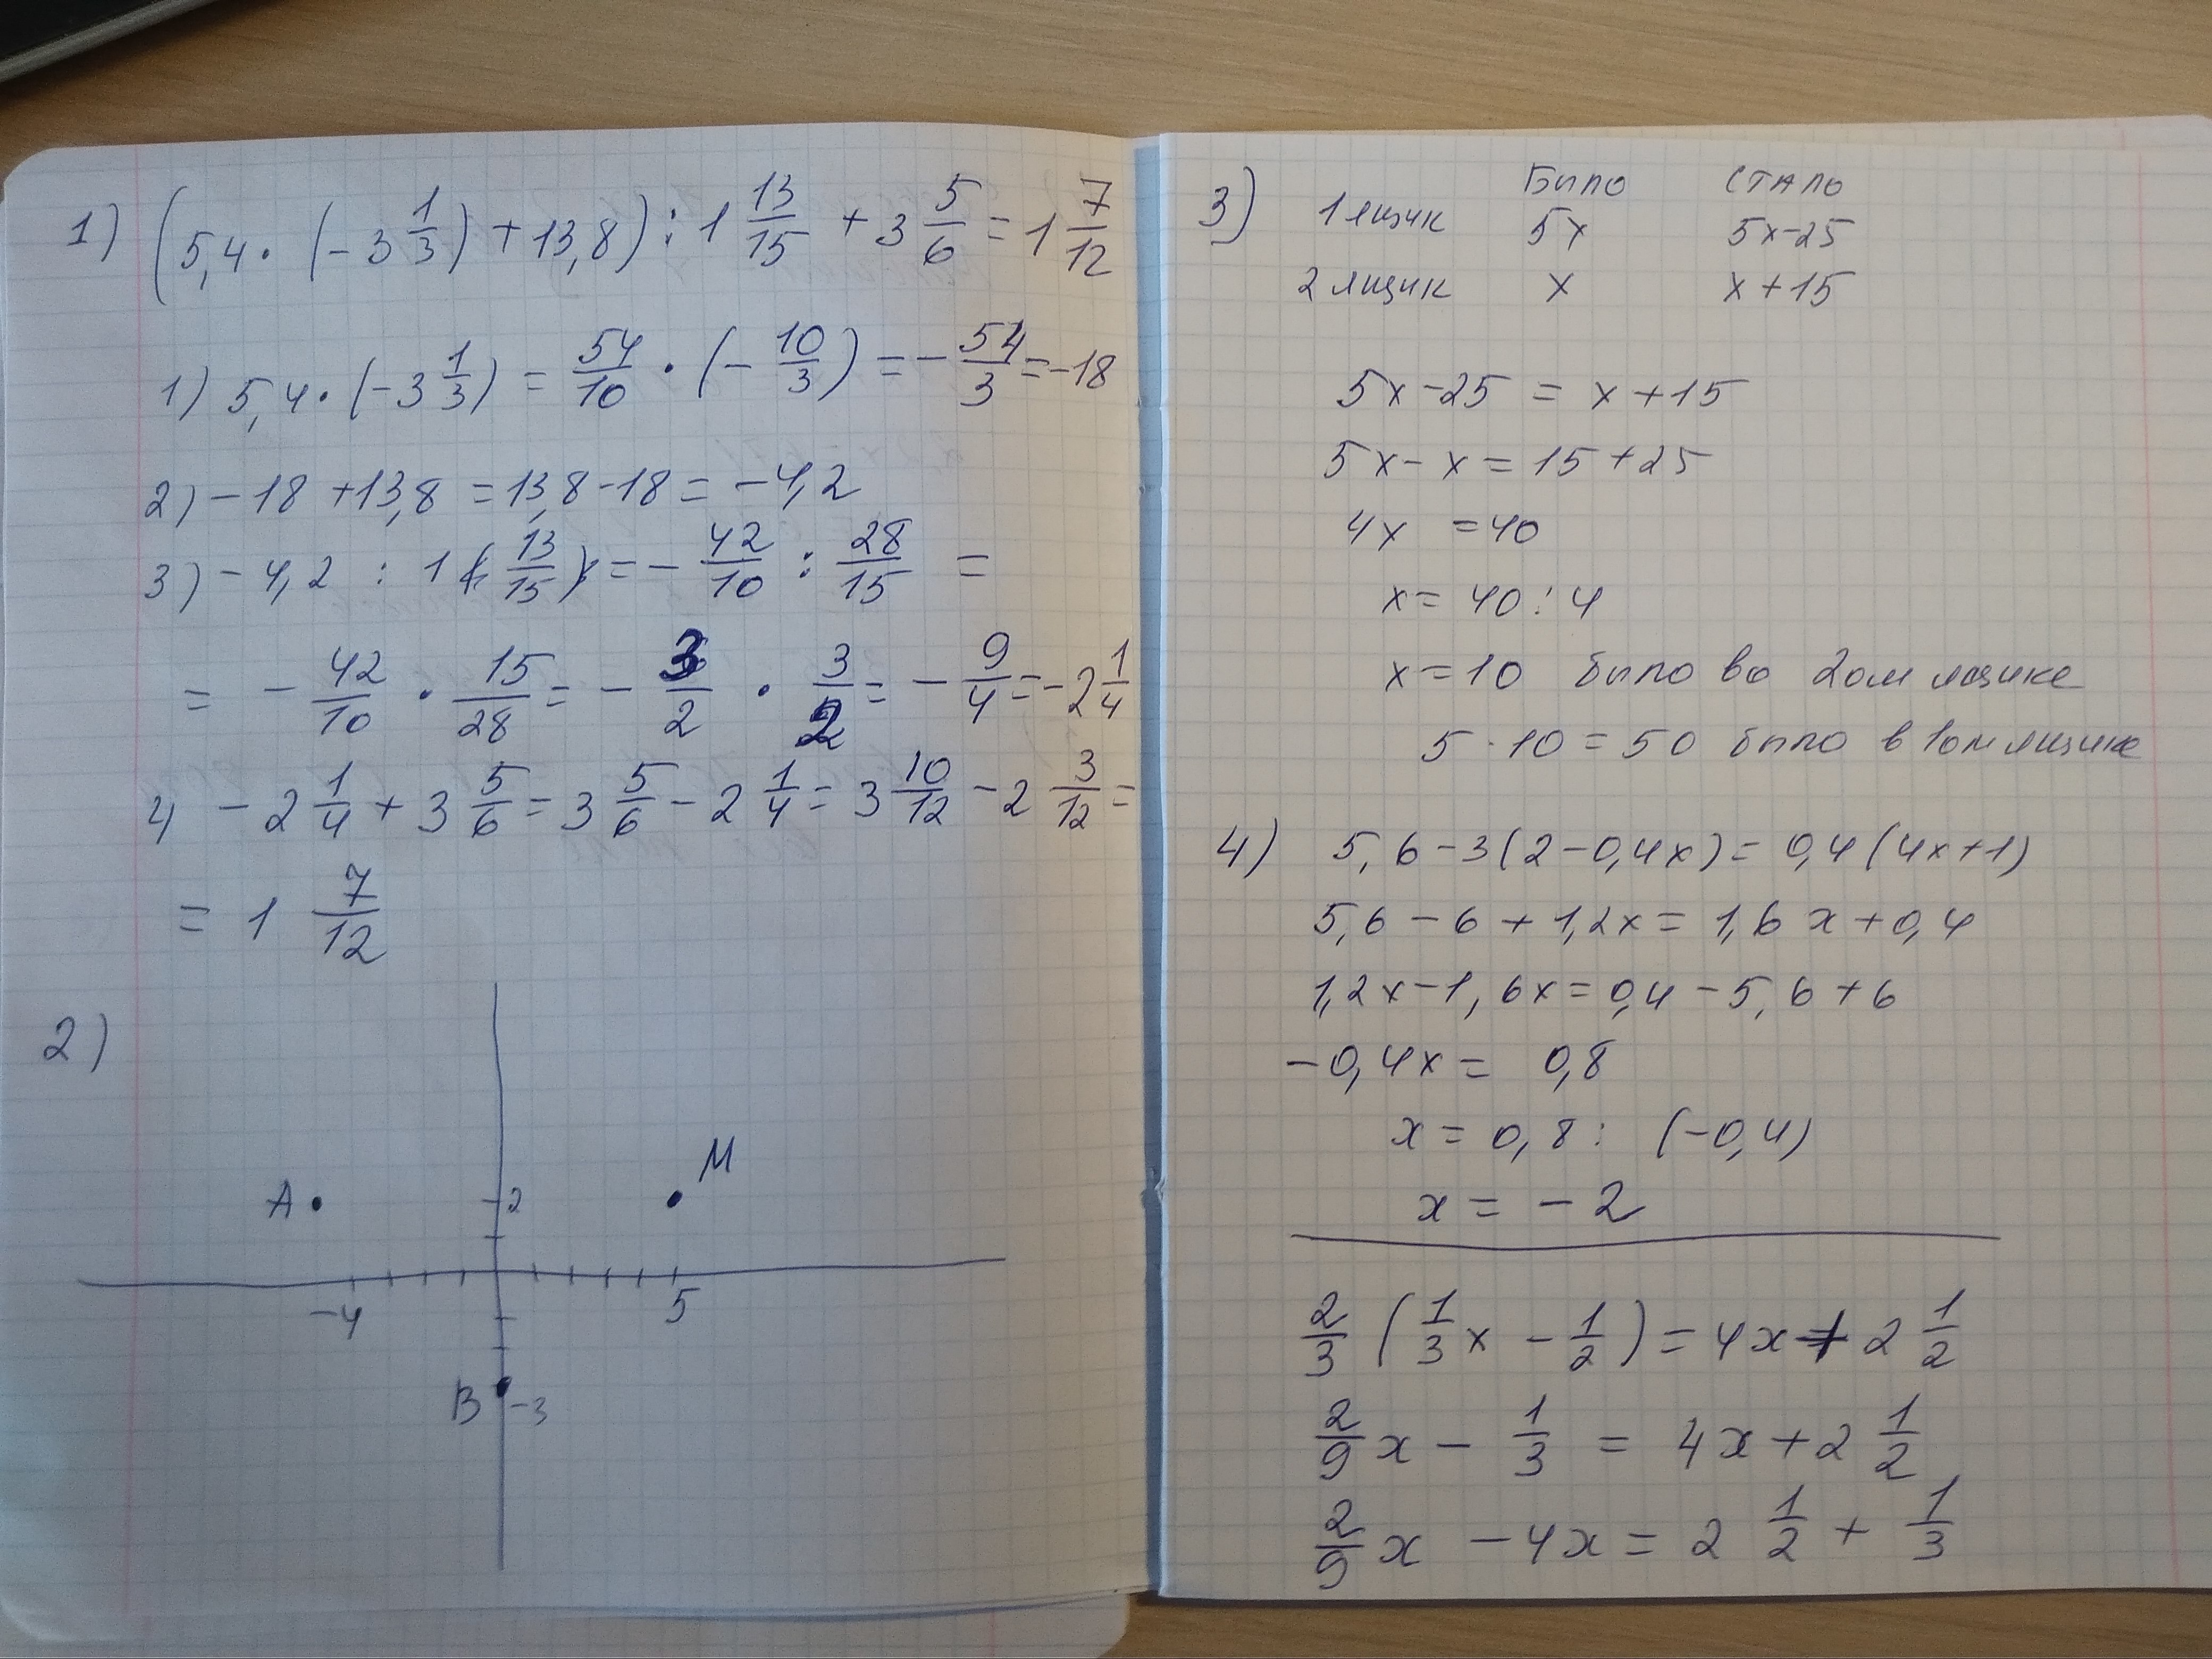 1) (5,4 · (-3 1/3) + 13,8) : 1 13/15 + 3 5/6 = 1 7/12
1) 5,4 · (-3 1/3) = 54/10 · (- 10/3) = - 54/3 = -18
2) -18 + 13,8 = 13,8 - 18 = -4,2
3) -4,2 : 1 (13/15) = - 42/10 : 28/15 =
= - 42/10 · 15/28 = - 3/2 · 3/2 = - 9/4 = -2 1/4
4 - 2 1/4 + 3 5/6 = 3 5/6 - 2 1/4 = 3 10/12 - 2 3/12 =
= 1 7/12
2)
A
2
M
-4
5
B
-3
Было Стало
3) 1 ящик 5x 5x-25
2 ящик x x+15
5x-25 = x+15
5x-x = 15+25
4x = 40
x = 40 : 4
x = 10 было во 2ом ящике
5 · 10 = 50 было в 1ом ящике
4) 5,6-3(2-0,4x) = 0,4(4x+1)
5,6-6+1,2x = 1,6x+0,4
1,2x-1,6x = 0,4-5,6+6
-0,4x = 0,8
x = 0,8 : (-0,4)
x = -2
2/3 (1/3 x - 1/2) = 4x + 2 1/2
2/9 x - 1/3 = 4x + 2 1/2
2/9 x - 4x = 2 1/2 + 1/3